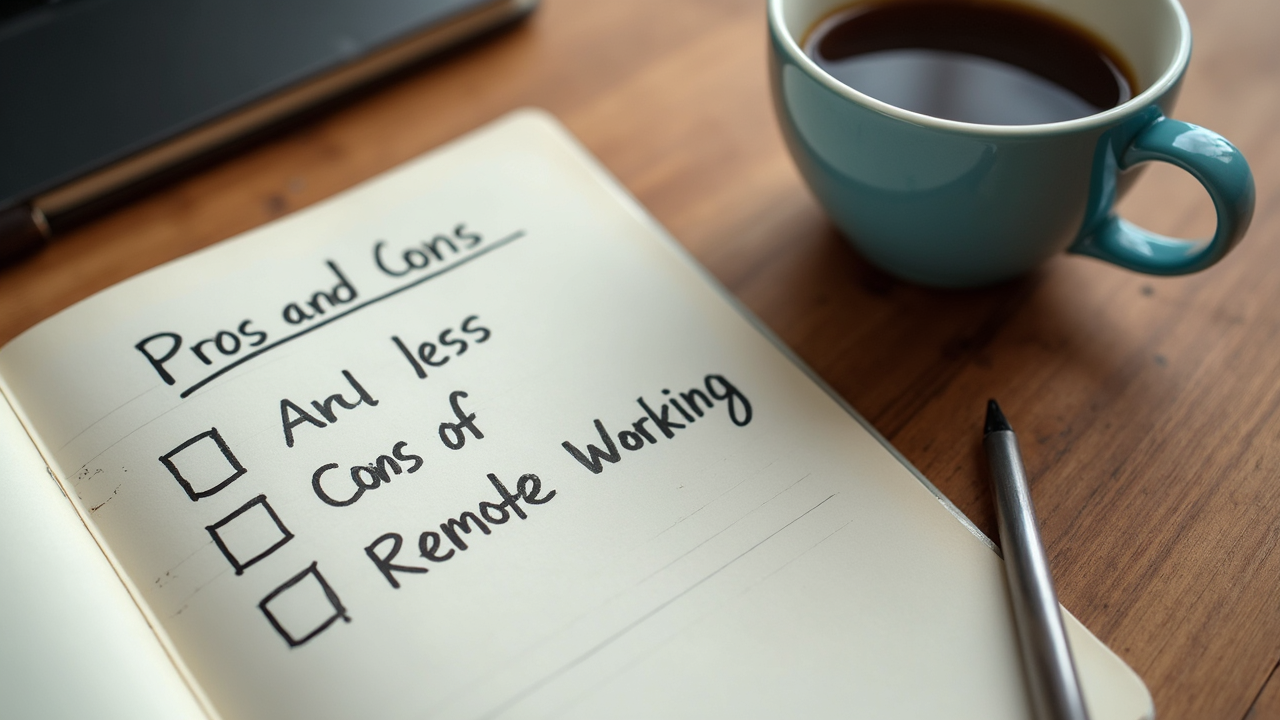 Pros and Cons
And less
Cons of
Remote Working